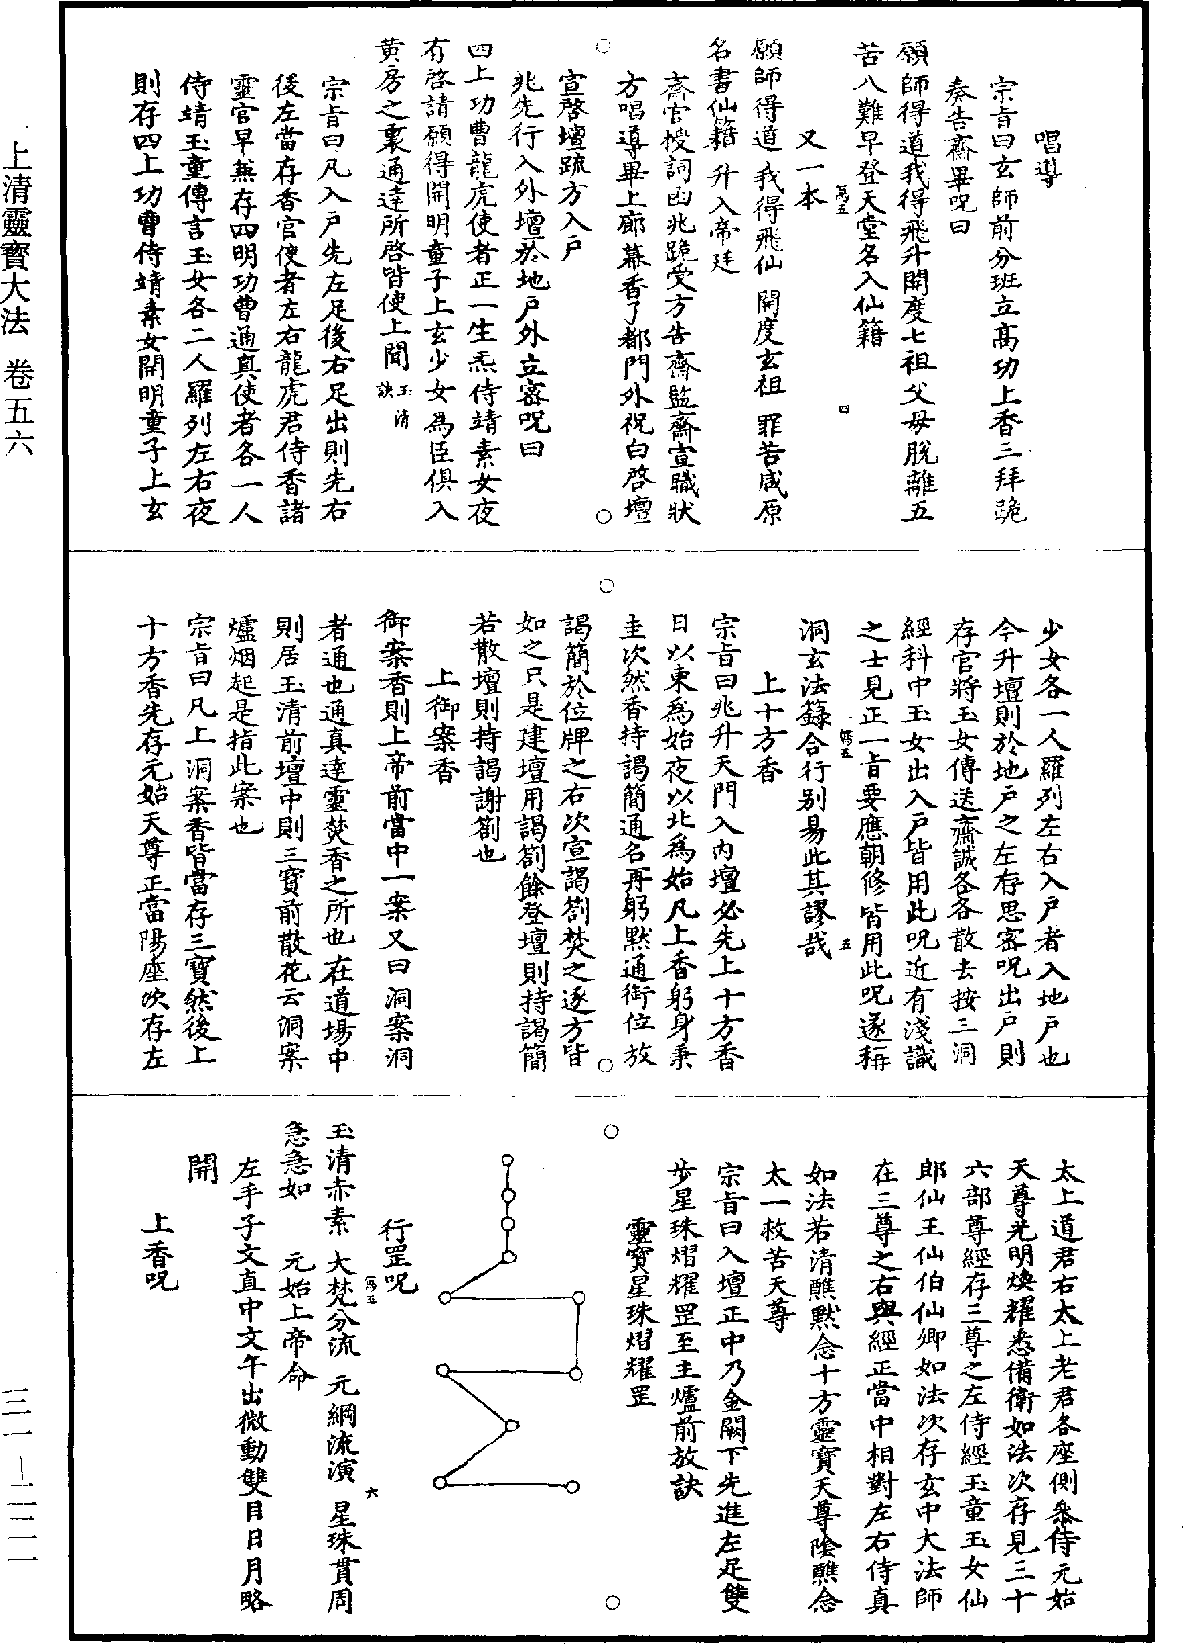 上清靈寳大法　卷五六
三一－二二一
唱導
宗旨曰玄師前分班立高功上香三拜跪
奏告齋畢呪曰
願師得道我得飛升開度七祖父母脫離五
苦八難早登天堂名入仙籍
又一本
四
願師得道　我得飛仙　開度玄祖　罪苦咸原
名書仙籍　升入帝廷
齋官授詞函兆跪受方告齋監齋宣職狀
方唱導畢上廊幕香了都門外祝白啓壇
宣啓壇疏方入戶
兆先行入外壇於地戶外立密呪曰
四上功曹龍虎使者正一生炁侍靖素女夜
有啓請願得開明童子上玄少女為臣俱入
黃房之裏通達所啓皆使上聞玉清訣
宗旨曰凡入戶先左足後右足出則先右
後左當存香官使者左右龍虎君侍香諸
靈官早無存四明功曹通真使者各一人
侍靖玉童傳言玉女各二人羅列左右夜
則存四上功曹侍靖素女開明童子上玄
少女各一人羅列左右入戶者入地戶也
今升壇則於地戶之左存思密呪出戶則
存官將玉女傳送齋誠各各散去按三洞
經科中玉女出入戶皆用此呪近有淺識
之士見正一旨要應朝修皆用此呪遂稱
洞玄法籙合行别易此其謬哉
五
上十方香
宗旨曰兆升天門入內壇必先上十方香
日以東為始夜以北為始凡上香躬身秉
圭次然香持謁簡通名再躬默通銜位放
謁簡於位牌之右次宣謁劄焚之逐方皆
如之只是建壇用謁劄餘登壇則持謁簡
若散壇則持謁謝劄也
上御案香
御案香則上帝前當中一案又曰洞案洞
者通也通真達靈焚香之所也在道場中
則居玉清前壇中則三寶前散花云洞案
爐烟起是指此案也
宗旨曰凡上洞案香皆當存三寶然後上
十方香先存元始天尊正當陽座次存左
太上道君右太上老君各座側叅侍元始
天尊光明煥耀悉備衛如法次存見三十
六部尊經存三尊之左侍經玉童玉女仙
郎仙王仙伯仙卿如法次存玄中大法師
在三尊之右與經正當中相對左右侍真
如法若清醮默念十方靈寳天尊陰醮念
太一救苦天尊
宗旨曰入壇正中乃金闕下先進左足雙
步星珠熠耀罡至主爐前放訣
靈寳星珠熠耀罡
行罡呪
六
玉清赤素　大梵分流　元綱流演　星珠貫周
急急如　元始上帝命
左手子文直中文午出微動雙目日月略
開
上香呪